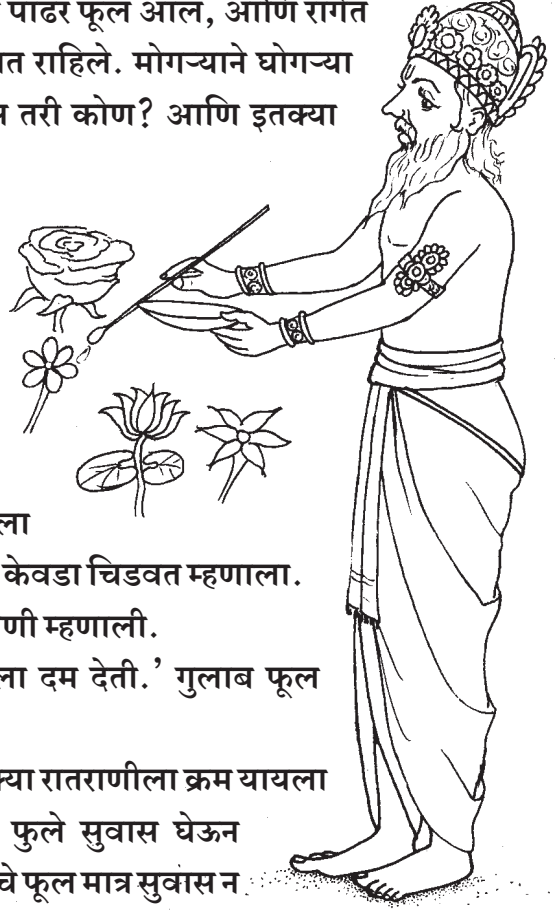 पांढरे फूल आले, आणि रागेत
त राहिले. मोगऱ्याने घोगऱ्या
तरी कोण? आणि इतक्या
ला
केवडा चिडवत म्हणाला.
णी म्हणाली.
ला दम देती.’ गुलाब फूल
क्या रातराणीला क्रम यायला
फुले सुवास घेऊन
चे फूल मात्र सुवास न